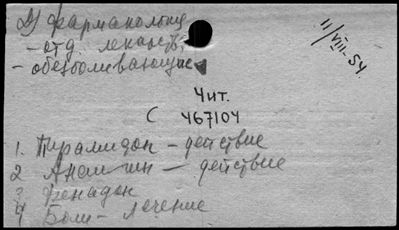 Д) фармакологи
- отд. лекарств,
- обезболивающие
11/VIII-54.
Чит.
С 467104
1. Пирамидон - действие
2 Анальгин - действие
3 Фенадон
4 Боли - лечение